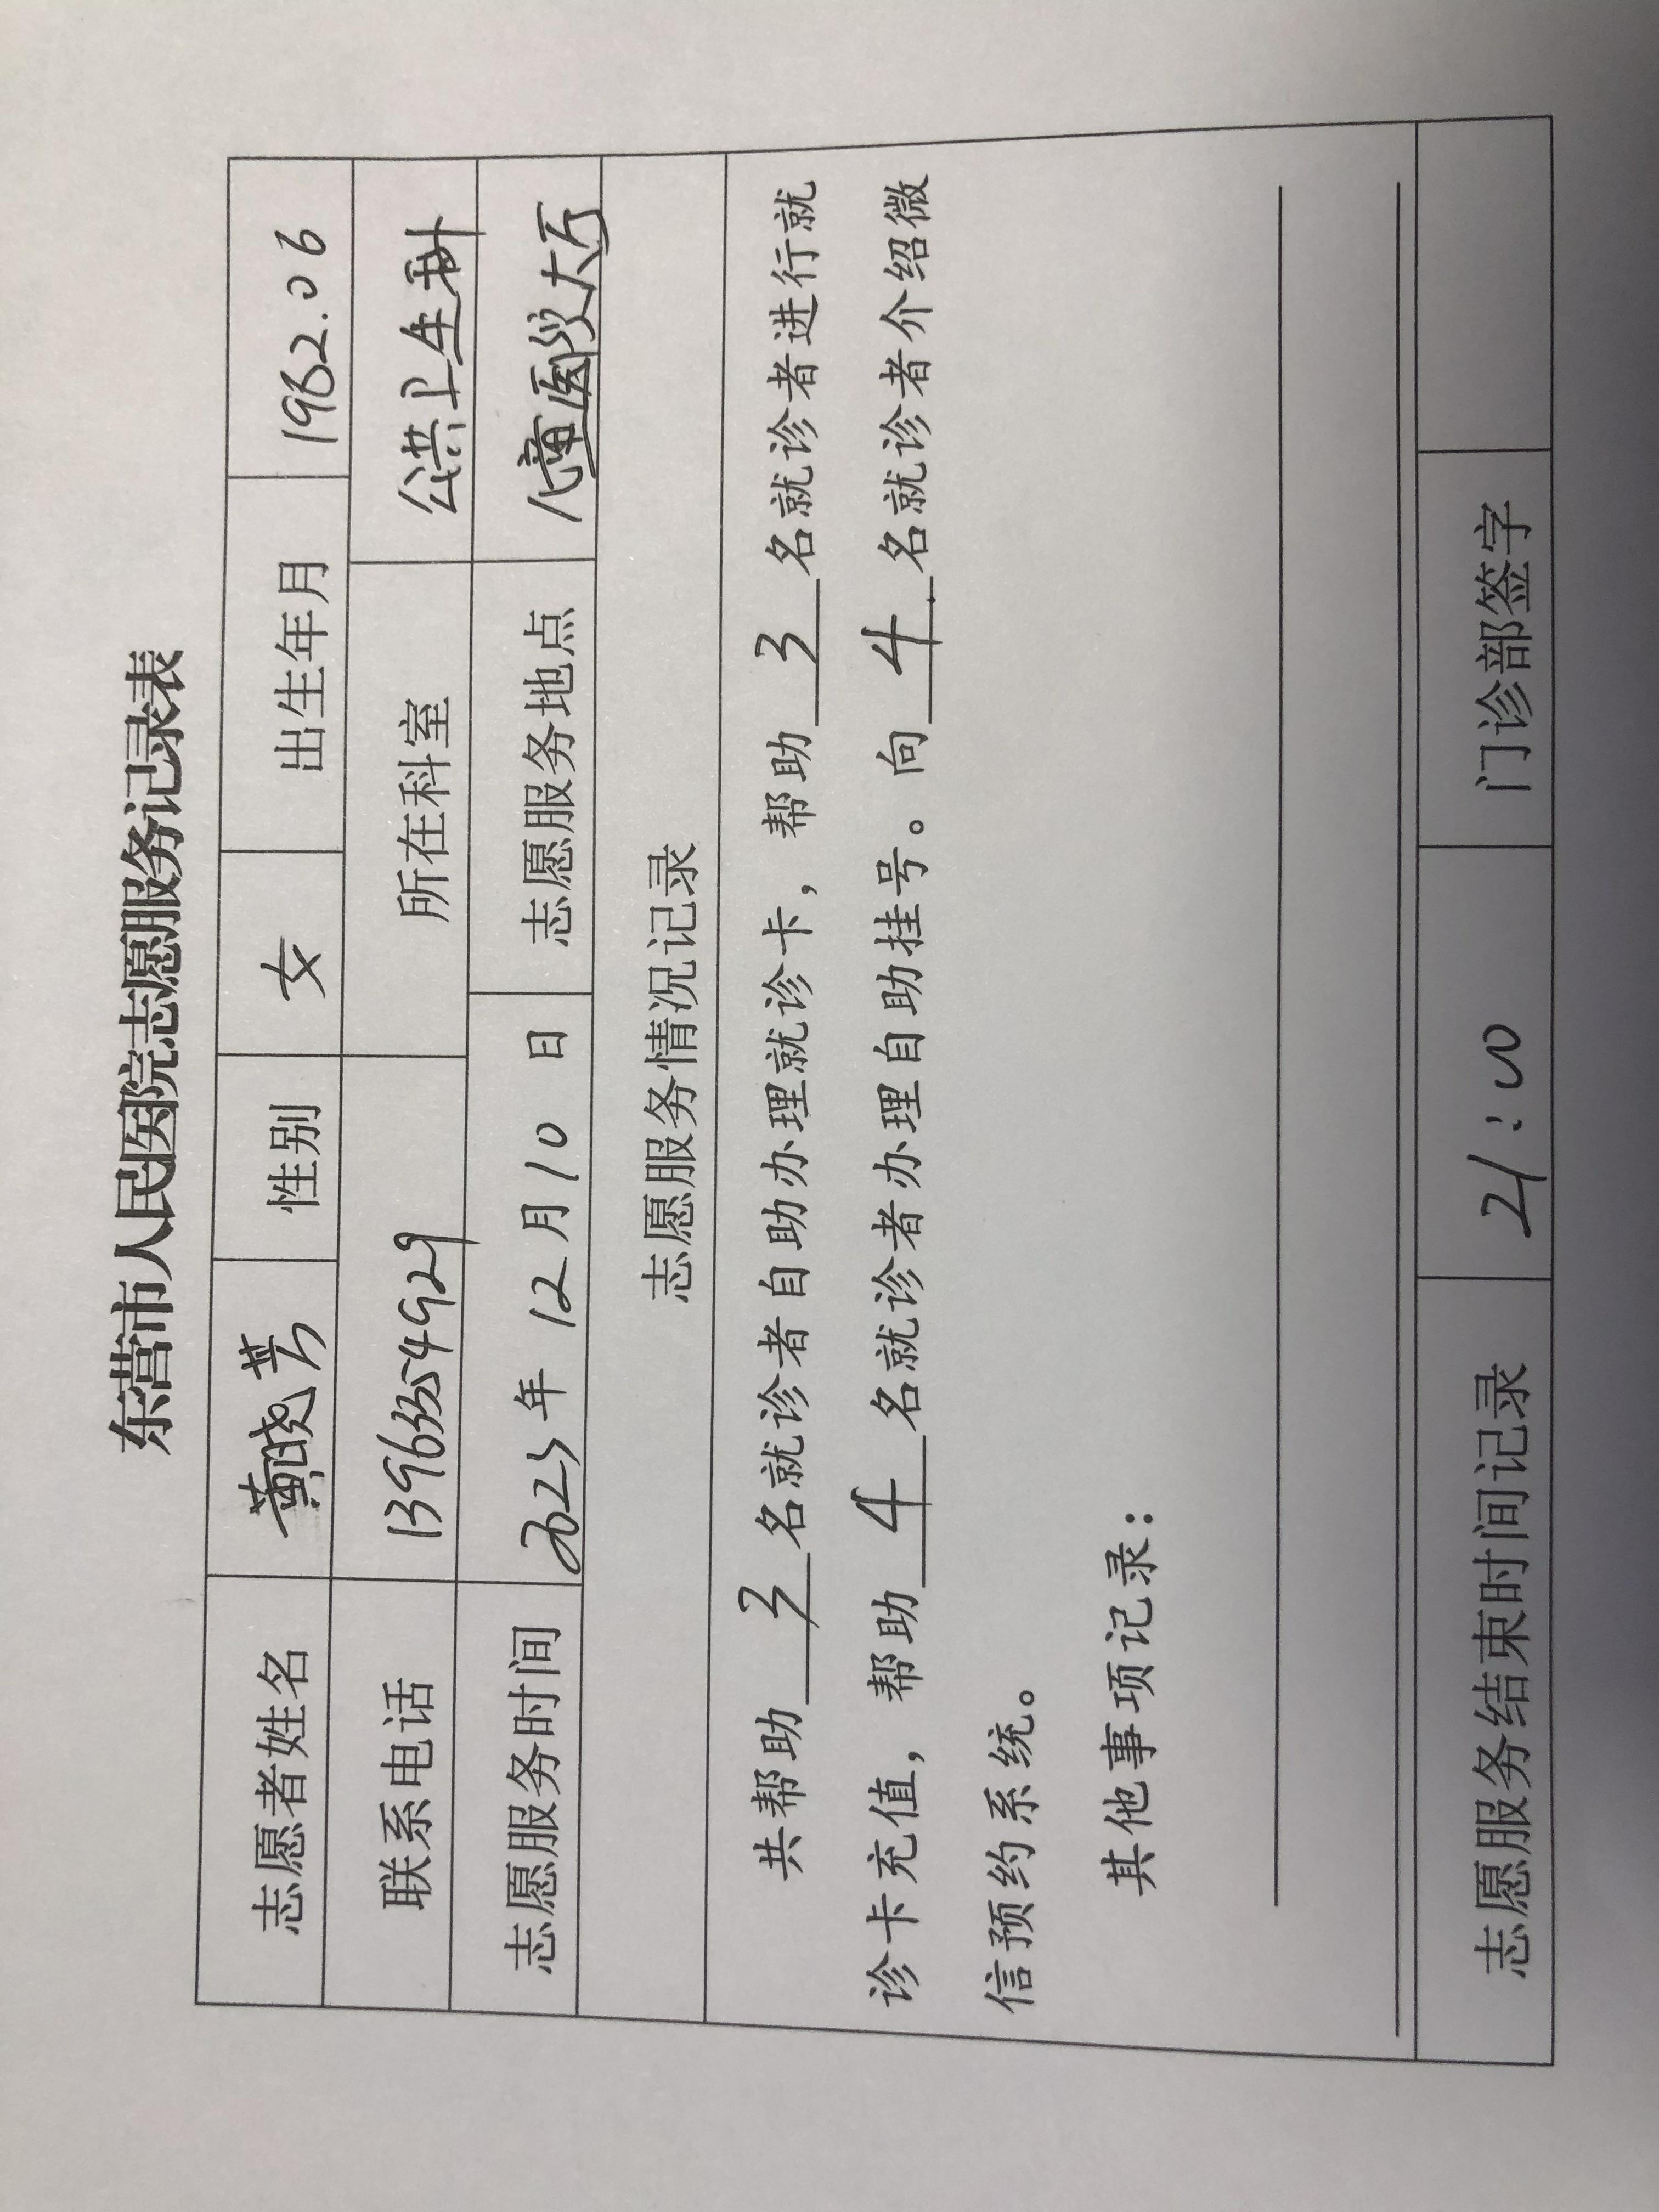 东营市人民医院志愿服务记录表
志愿者姓名 黄晓芳 性别 女 出生年月 1962.06
联系电话 13963354929 所在科室 公共卫生科
志愿服务时间 2023年12月10日 志愿服务地点 大厅
志愿服务情况记录
共帮助3名就诊者自助办理就诊卡，帮助3名就诊者进行就
诊卡充值，帮助4名就诊者办理自助挂号。向4名就诊者介绍微
信预约系统。
其他事项记录：
志愿服务结束时间记录 21:00 门诊部签字